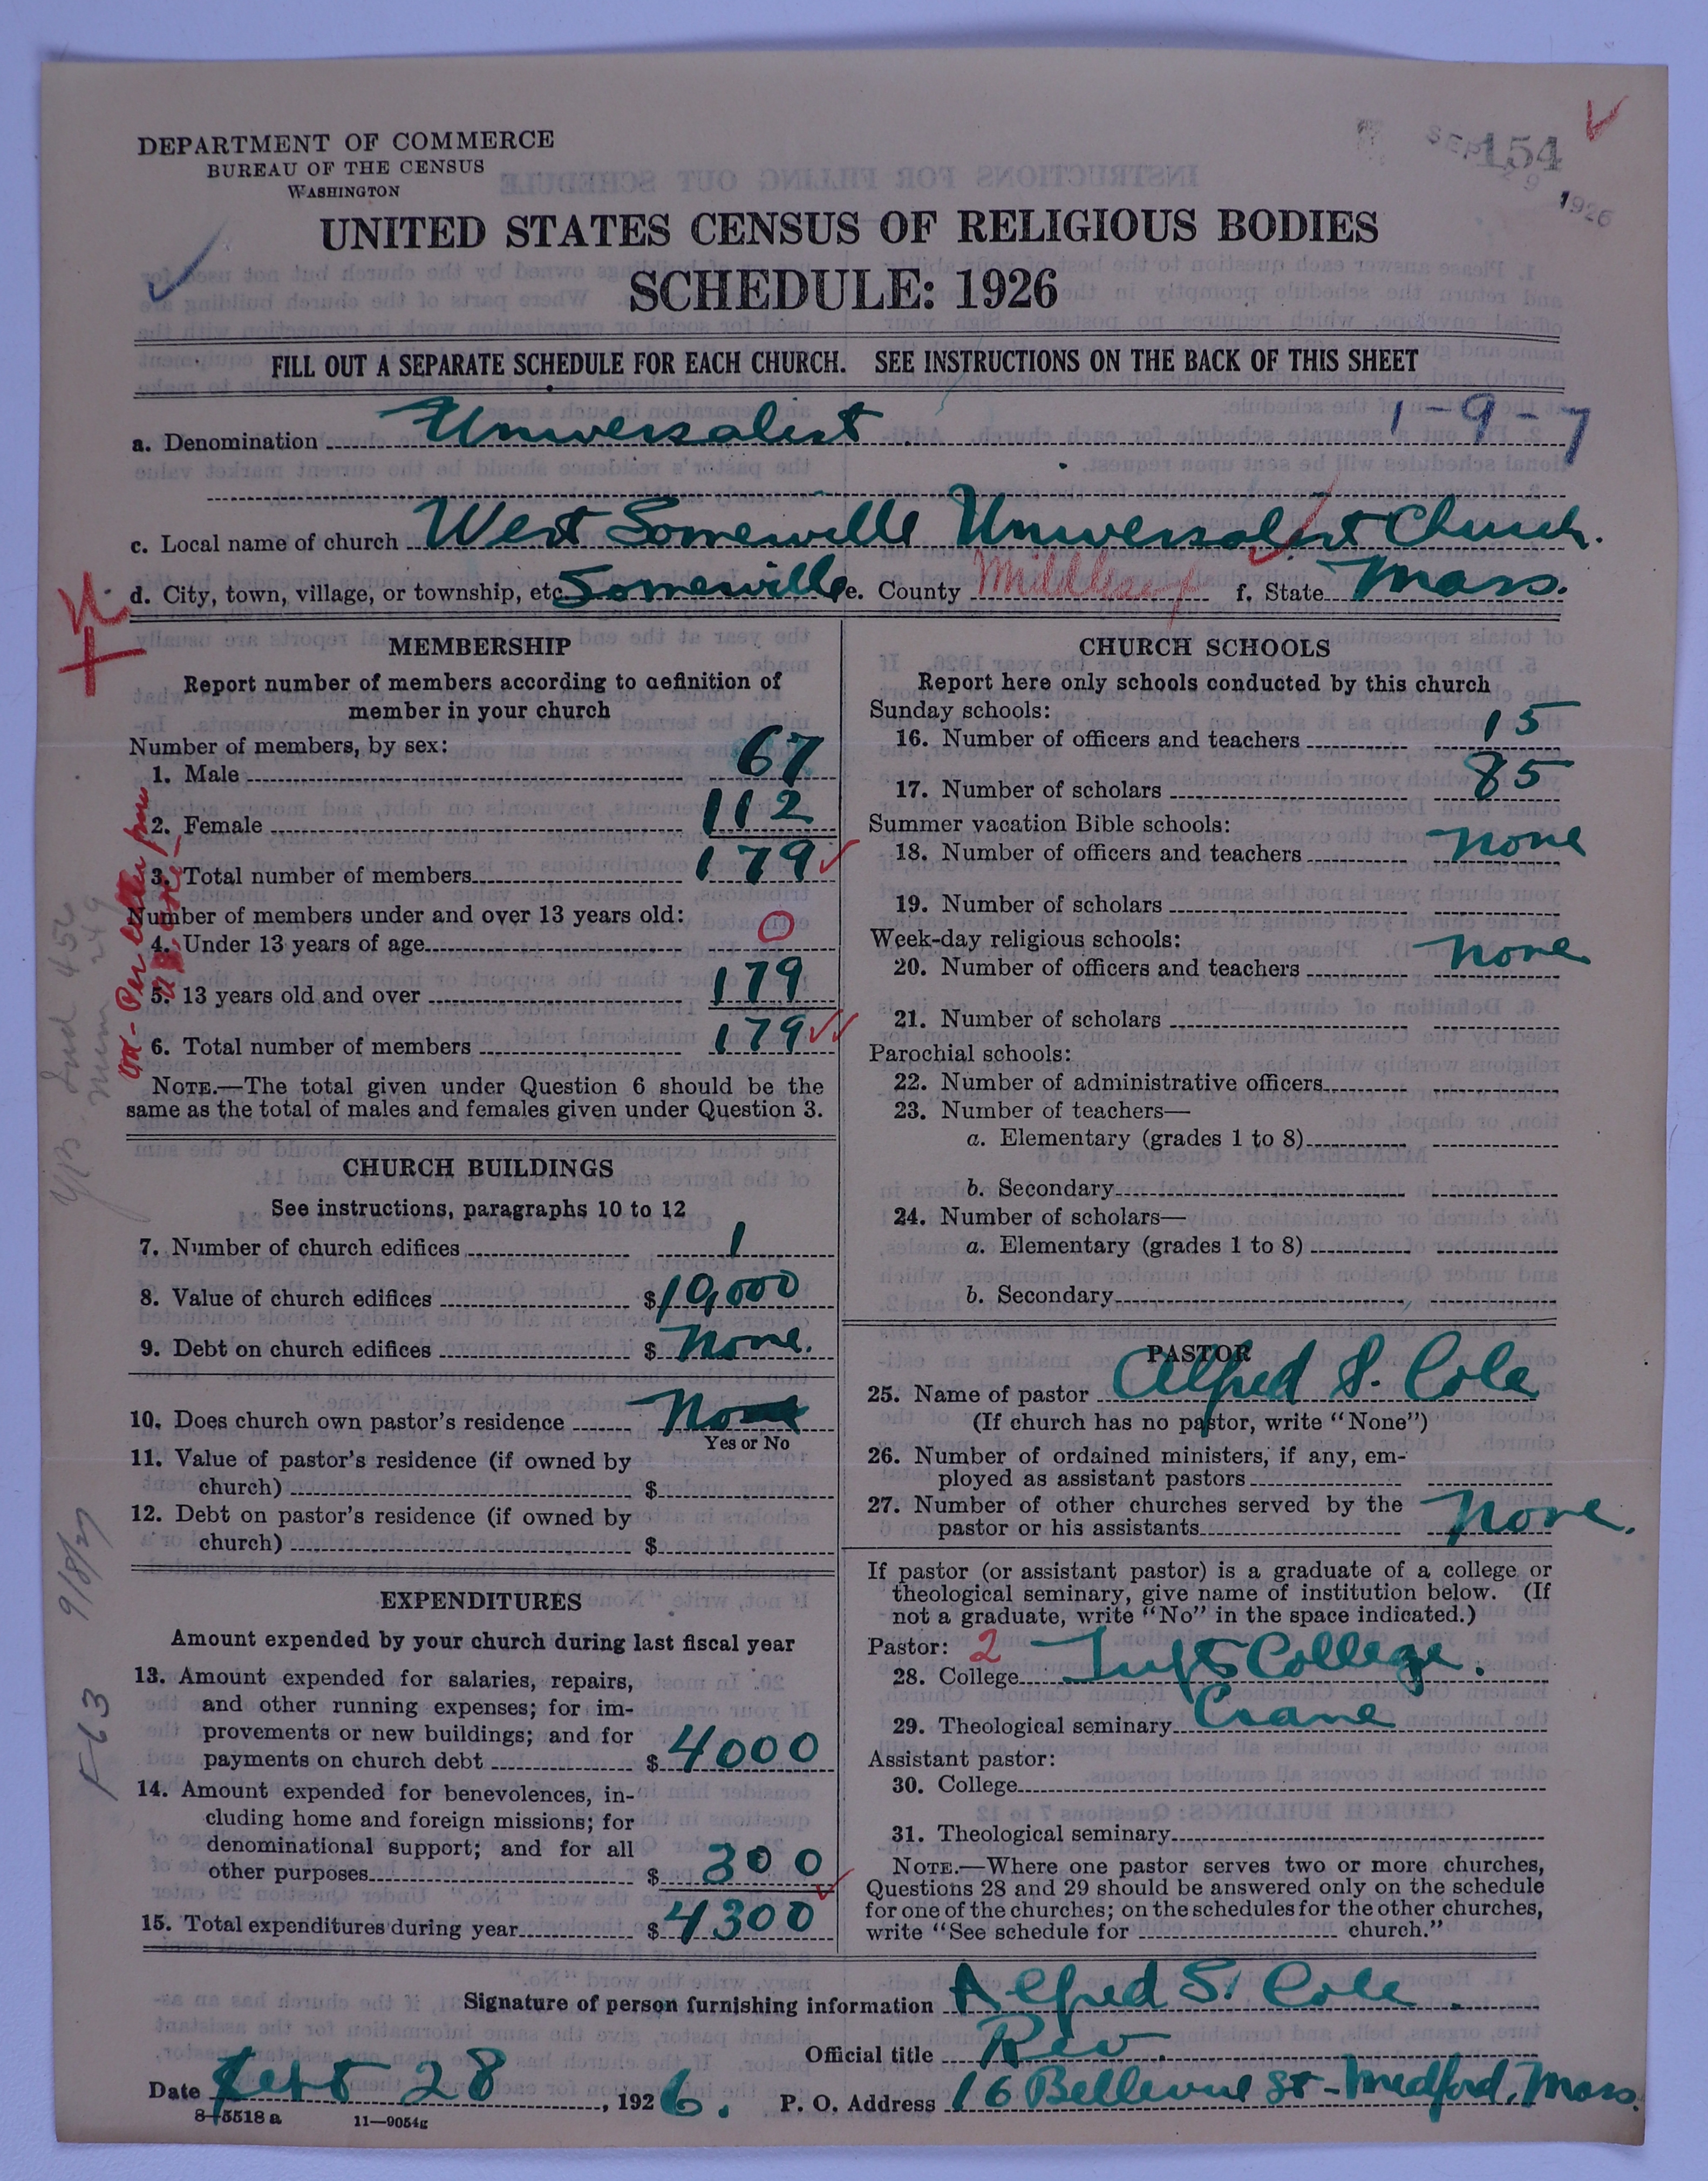 DEPARTMENT OF COMMERCE
BUREAU OF THE CENSUS
WASHINGTON
SEP 29 1926
154
UNITED STATES CENSUS OF RELIGIOUS BODIES
SCHEDULE: 1926
FILL OUT A SEPARATE SCHEDULE FOR EACH CHURCH. SEE INSTRUCTIONS ON THE BACK OF THIS SHEET
1-9-7
a. Denomination Universalist
c. Local name of church West Somerville Universalist Church.
d. City, town, village, or township, etc. Somerville e. County Middlesex f. State Mass.
MEMBERSHIP
Report number of members according to definition of
member in your church
Number of members, by sex:
1. Male 67
2. Female 112
3. Total number of members 179
Number of members under and over 13 years old:
4. Under 13 years of age 0
5. 13 years old and over 179
6. Total number of members 179
NOTE.—The total given under Question 6 should be the
same as the total of males and females given under Question 3.
CHURCH BUILDINGS
See instructions, paragraphs 10 to 12
7. Number of church edifices 1
8. Value of church edifices $10,000
9. Debt on church edifices $ None.
10. Does church own pastor's residence No
Yes or No
11. Value of pastor's residence (if owned by
church) $
12. Debt on pastor's residence (if owned by
church) $
EXPENDITURES
Amount expended by your church during last fiscal year
13. Amount expended for salaries, repairs,
and other running expenses; for im-
provements or new buildings; and for
payments on church debt $4000
14. Amount expended for benevolences, in-
cluding home and foreign missions; for
denominational support; and for all
other purposes $ 300
15. Total expenditures during year $4300
CHURCH SCHOOLS
Report here only schools conducted by this church
Sunday schools:
16. Number of officers and teachers 15
17. Number of scholars 85
Summer vacation Bible schools:
18. Number of officers and teachers None
19. Number of scholars
Week-day religious schools:
20. Number of officers and teachers None
21. Number of scholars
Parochial schools:
22. Number of administrative officers
23. Number of teachers—
a. Elementary (grades 1 to 8)
b. Secondary
24. Number of scholars—
a. Elementary (grades 1 to 8)
b. Secondary
PASTOR
25. Name of pastor Alfred S. Cole
(If church has no pastor, write "None")
26. Number of ordained ministers, if any, em-
ployed as assistant pastors
27. Number of other churches served by the
pastor or his assistants None.
If pastor (or assistant pastor) is a graduate of a college or
theological seminary, give name of institution below. (If
not a graduate, write "No" in the space indicated.)
Pastor: 2
28. College Tufts College.
29. Theological seminary Crane
Assistant pastor:
30. College
31. Theological seminary
NOTE.—Where one pastor serves two or more churches,
Questions 28 and 29 should be answered only on the schedule
for one of the churches; on the schedules for the other churches,
write "See schedule for church."
Signature of person furnishing information Alfred S. Cole.
Official title Rev.
Date Sept 28, 1926. P. O. Address 16 Bellevue St - Medford, Mass.
8-5518 a 11—9054g
9/8/27